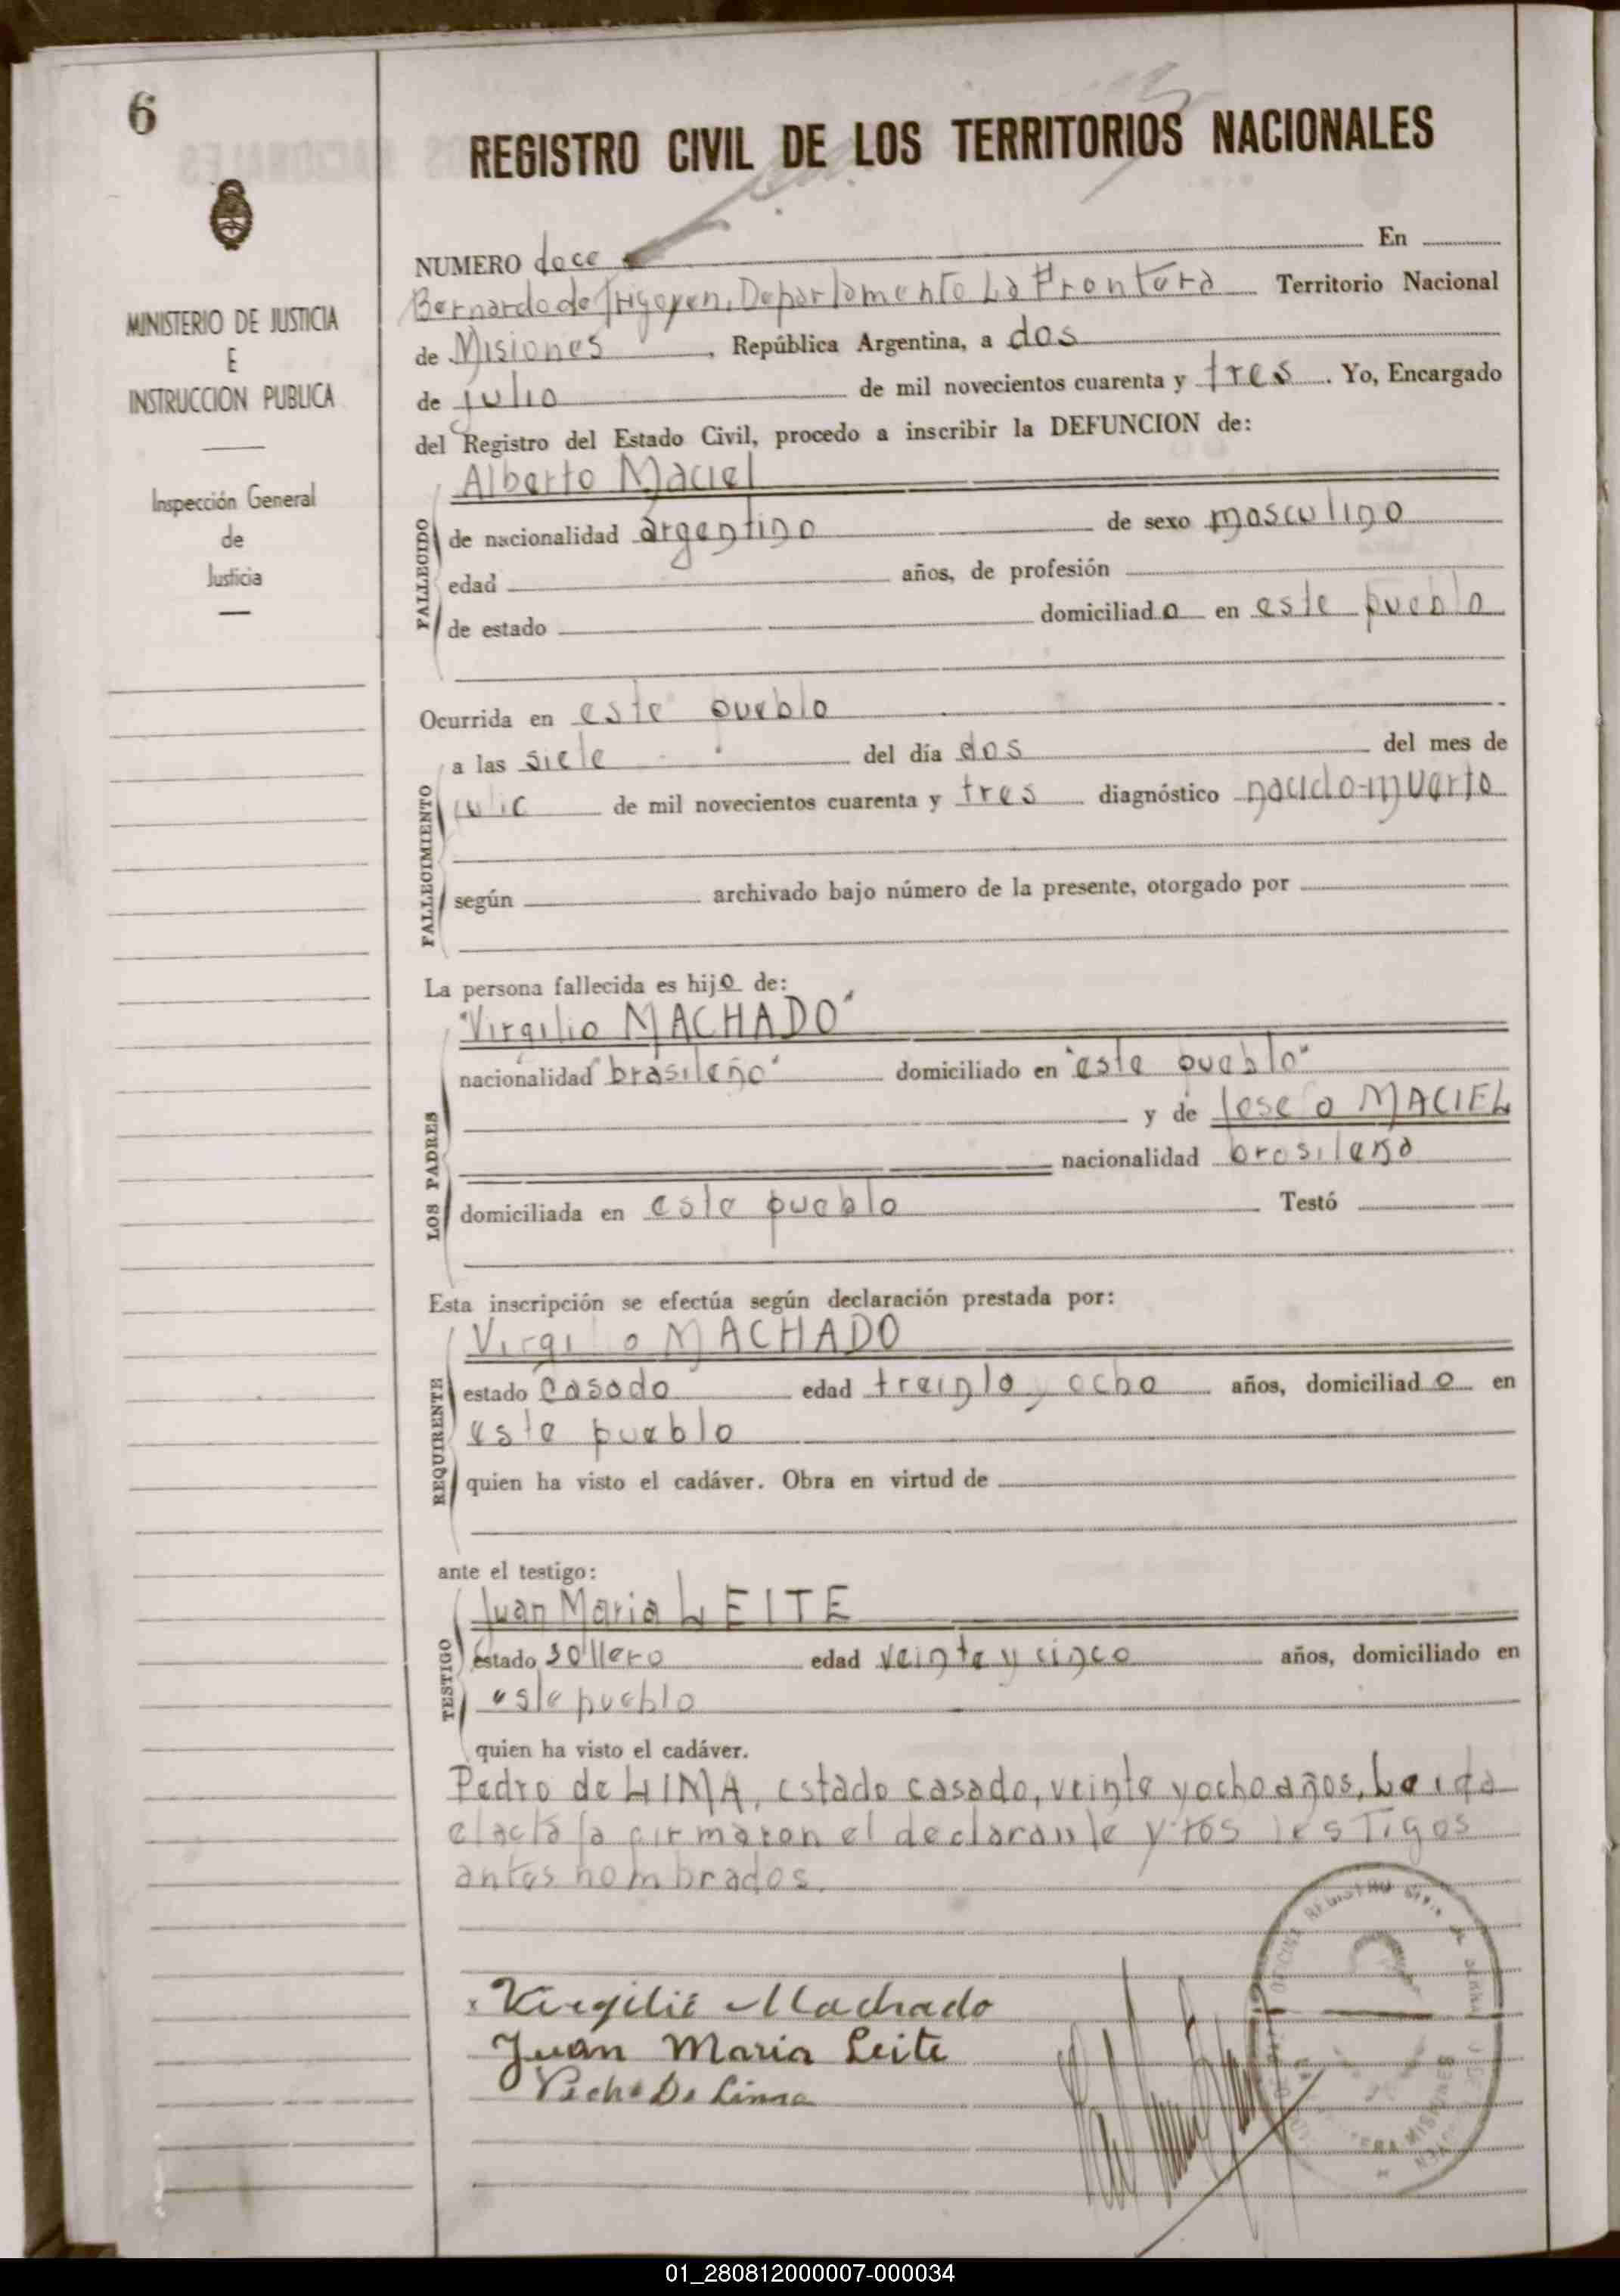 6
REGISTRO CIVIL DE LOS TERRITORIOS NACIONALES
MINISTERIO DE JUSTICIA
E
INSTRUCCION PUBLICA
Inspección General
de
Justicia
NUMERO doce En
Bernardo de Irigoyen, Departamento La Frontera Territorio Nacional
de Misiones, República Argentina, a dos
de julio de mil novecientos cuarenta y tres. Yo, Encargado
del Registro del Estado Civil, procedo a inscribir la DEFUNCION de:
FALLECIDO
Alberto Maciel
de nacionalidad argentino de sexo masculino
edad años, de profesión
de estado domiciliado en este pueblo
Ocurrida en este pueblo
FALLECIMIENTO
a las siete del día dos del mes de
julio de mil novecientos cuarenta y tres diagnóstico nacido-muerto
según archivado bajo número de la presente, otorgado por
La persona fallecida es hijo de:
LOS PADRES
"Virgilio MACHADO"
nacionalidad "brasileño" domiciliado en "este pueblo"
y de MACIEL
nacionalidad brasileña
domiciliada en este pueblo Testó
Esta inscripción se efectúa según declaración prestada por:
REQUIRENTE
Virgilio MACHADO
estado casado edad treinta y ocho años, domiciliado en
este pueblo
quien ha visto el cadáver. Obra en virtud de
ante el testigo:
TESTIGO
Juan Maria LEITE
estado soltero edad veinte y cinco años, domiciliado en
este pueblo
quien ha visto el cadáver.
Pedro de LIMA, estado casado, veinte y ocho años, Leida
el acta la firmaron el declarante y los testigos
antes nombrados.
Virgilio Machado
Juan Maria Leite
De Lima
REGISTRO CIVIL
MISIONES
01_280812000007-000034